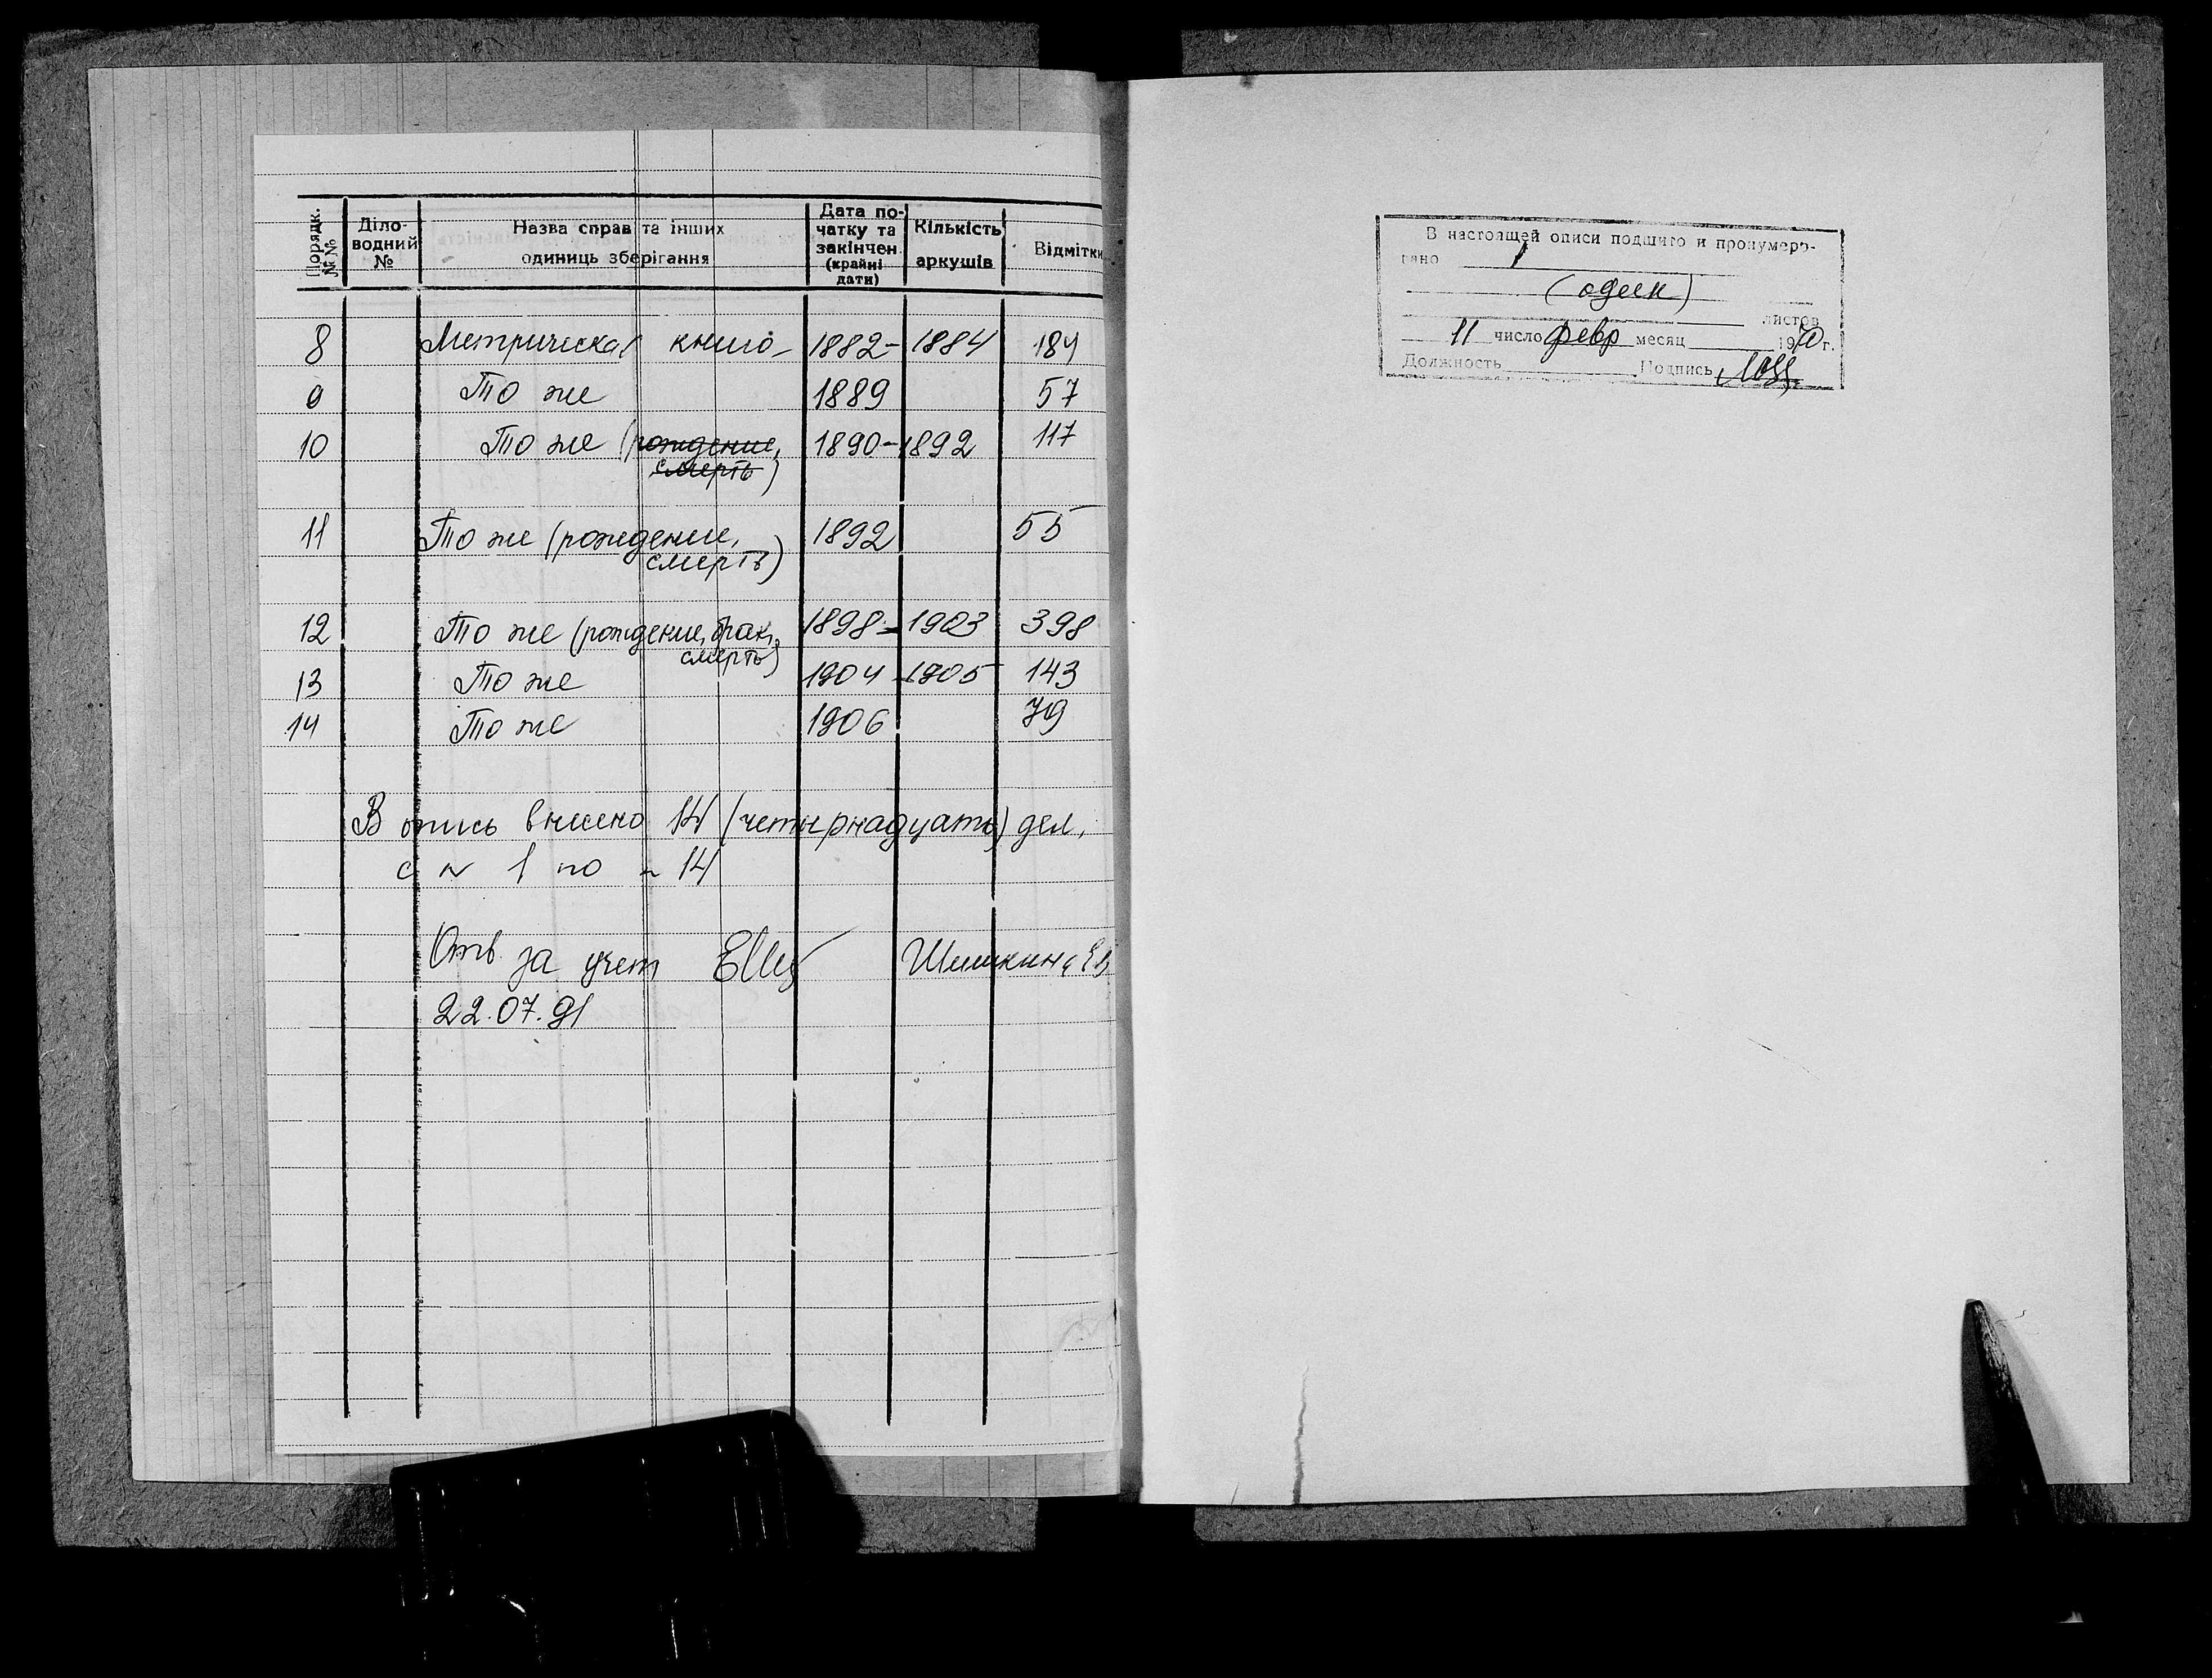 Порядк. №№
Діло-водний №
Назва справ та інших одиниць зберігання
Дата по-чатку та закінчен. (крайні дати)
Кількість аркушів
Відмітки
8 Метрическая книга 1882-1884 184
9 То же 1889 57
10 То же (рождение, 1890-1892 117
смерть)
11 То же (рождение, 1892 55
смерть)
12 То же (рождение, брак, 1898-1903 398
смерть)
13 То же 1904-1905 143
14 То же 1906 79
В опись внесено 14 (четырнадцать) дел,
с № 1 по № 14
Отв. за учет Шишкина
22.07.91
В настоящей описи подшито и пронумеро-
вано 1
(один)
листов
11 число февр месяц 1970 г.
Должность Подпись